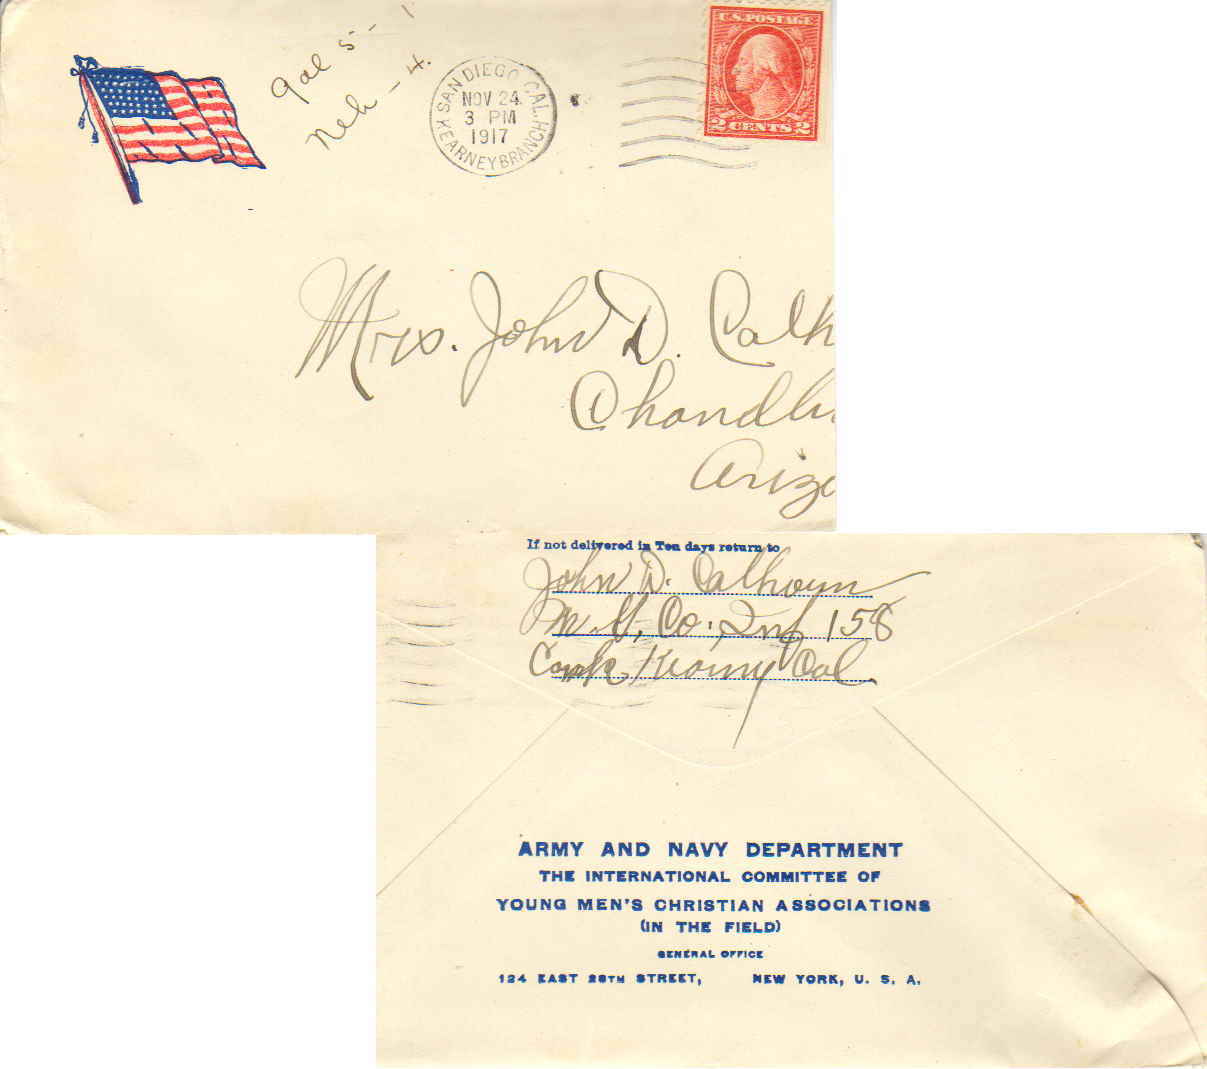 Gal 5-1
Neh-4.
SAN DIEGO, CAL.
NOV 24
3 PM
1917
KEARNEY BRANCH
U.S. POSTAGE
2 CENTS 2
Mrs. John D. Calh
Chandle
Arizo
If not delivered in Ten days return to
John D. Calhoun
M. G. Co. Inf 158
Camp Kearny Cal.
ARMY AND NAVY DEPARTMENT
THE INTERNATIONAL COMMITTEE OF
YOUNG MEN'S CHRISTIAN ASSOCIATIONS
(IN THE FIELD)
GENERAL OFFICE
124 EAST 28TH STREET, NEW YORK, U. S. A.